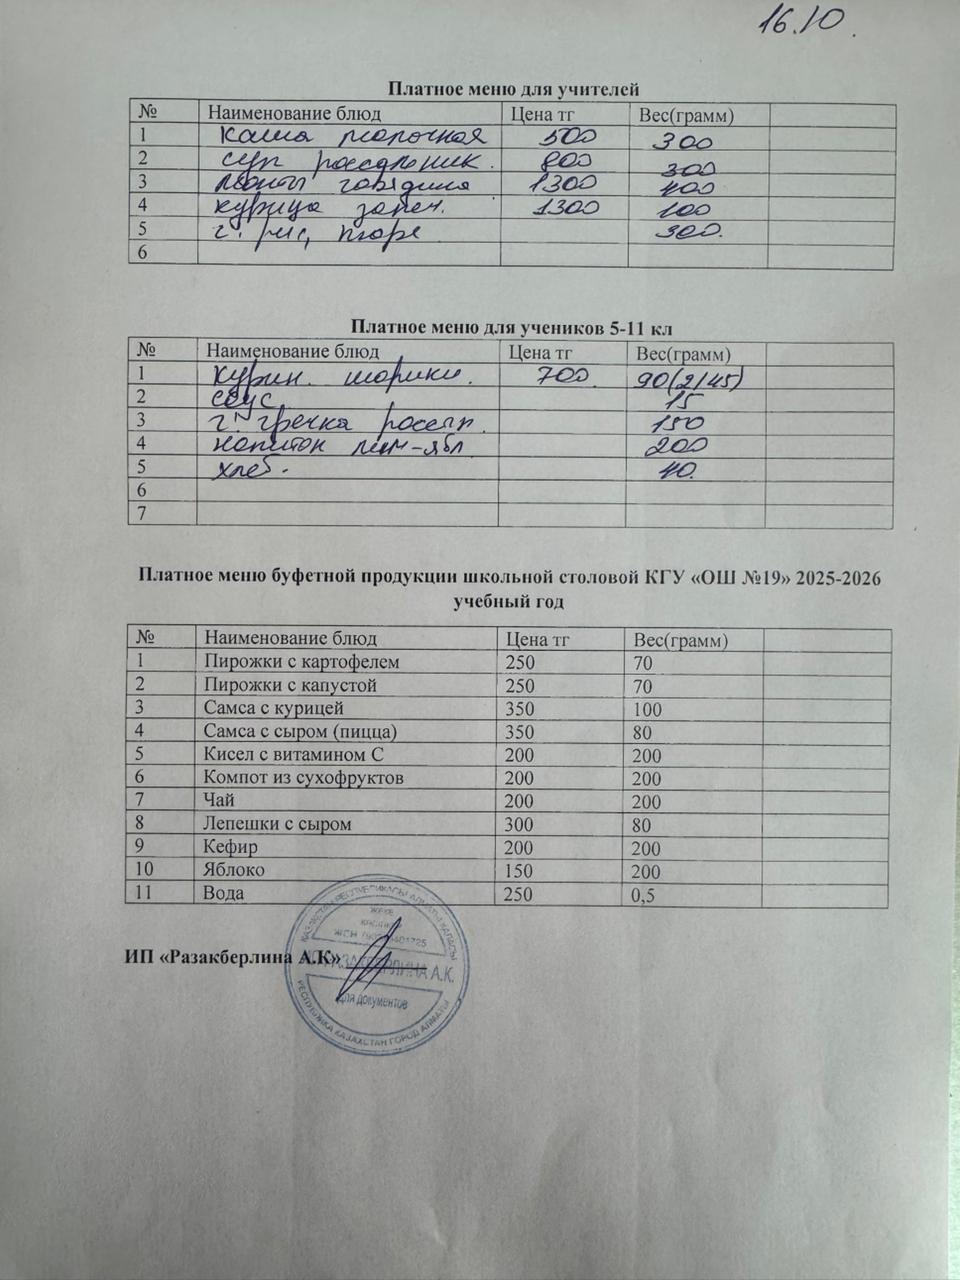 16.10.
Платное меню для учителей
№ Наименование блюд Цена тг Вес(грамм)
1 каша молочная 500 300
2 суп рассольник. 800 300
3 говядина 1300 100
4 курица запеч. 1300 100
5 г. рис, пюре 300.
6
Платное меню для учеников 5-11 кл
№ Наименование блюд Цена тг Вес(грамм)
1 курин. шарики. 700 90(2/45)
2 соус 15
3 гречка рассып. 150
4 напиток лим-ябл 200
5 хлеб. 40.
6
7
Платное меню буфетной продукции школьной столовой КГУ «ОШ №19» 2025-2026
учебный год
№ Наименование блюд Цена тг Вес(грамм)
1 Пирожки с картофелем 250 70
2 Пирожки с капустой 250 70
3 Самса с курицей 350 100
4 Самса с сыром (пицца) 350 80
5 Кисел с витамином С 200 200
6 Компот из сухофруктов 200 200
7 Чай 200 200
8 Лепешки с сыром 300 80
9 Кефир 200 200
10 Яблоко 150 200
11 Вода 250 0,5
ИП «Разакберлина А.К»
Для документов
РЕСПУБЛИКА КАЗАХСТАН ГОРОД АЛМАТЫ